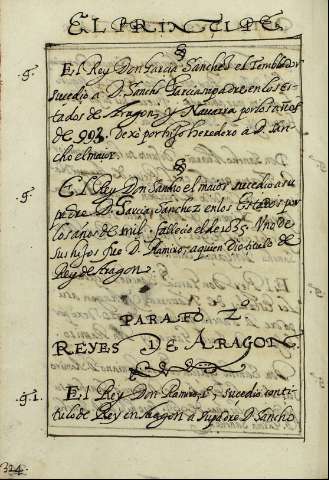 EL PRINCIPE
§
§. El Rey Don Garcia Sanches el Temblador
sucedio a D. Sancho Garcia su padre en los es-
tados de Aragon, y Navarra por los años
de 993. dexò por hijo heredero a D. San-
cho el maior.
§
§. El Rey Don Sancho el maior sucedio a su
padre D. Garcia Sanchez en los Estados por
los años de mil. fallecio el de 1035. Uno de
sus hijos fue D. Ramiro, a quien dio titulo de
Rey de Aragon.
PARAFO 2º
REYES DE ARAGON
§.1. El Rey Don Ramiro 1º, sucedio con ti-
tulo de Rey en Aragon a su padre D. Sancho
324.